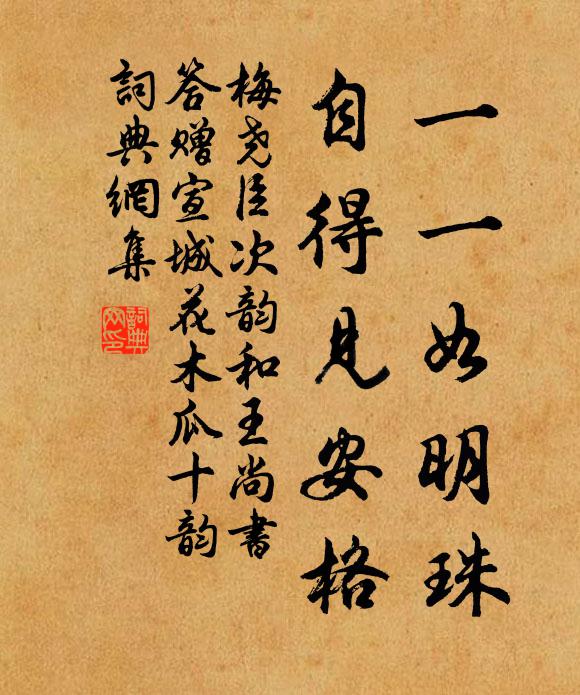 一一如明珠
自得見安格
梅堯臣次韵和王尚書
答贈宣城花木瓜十韵
詞典網集
詞典
网印